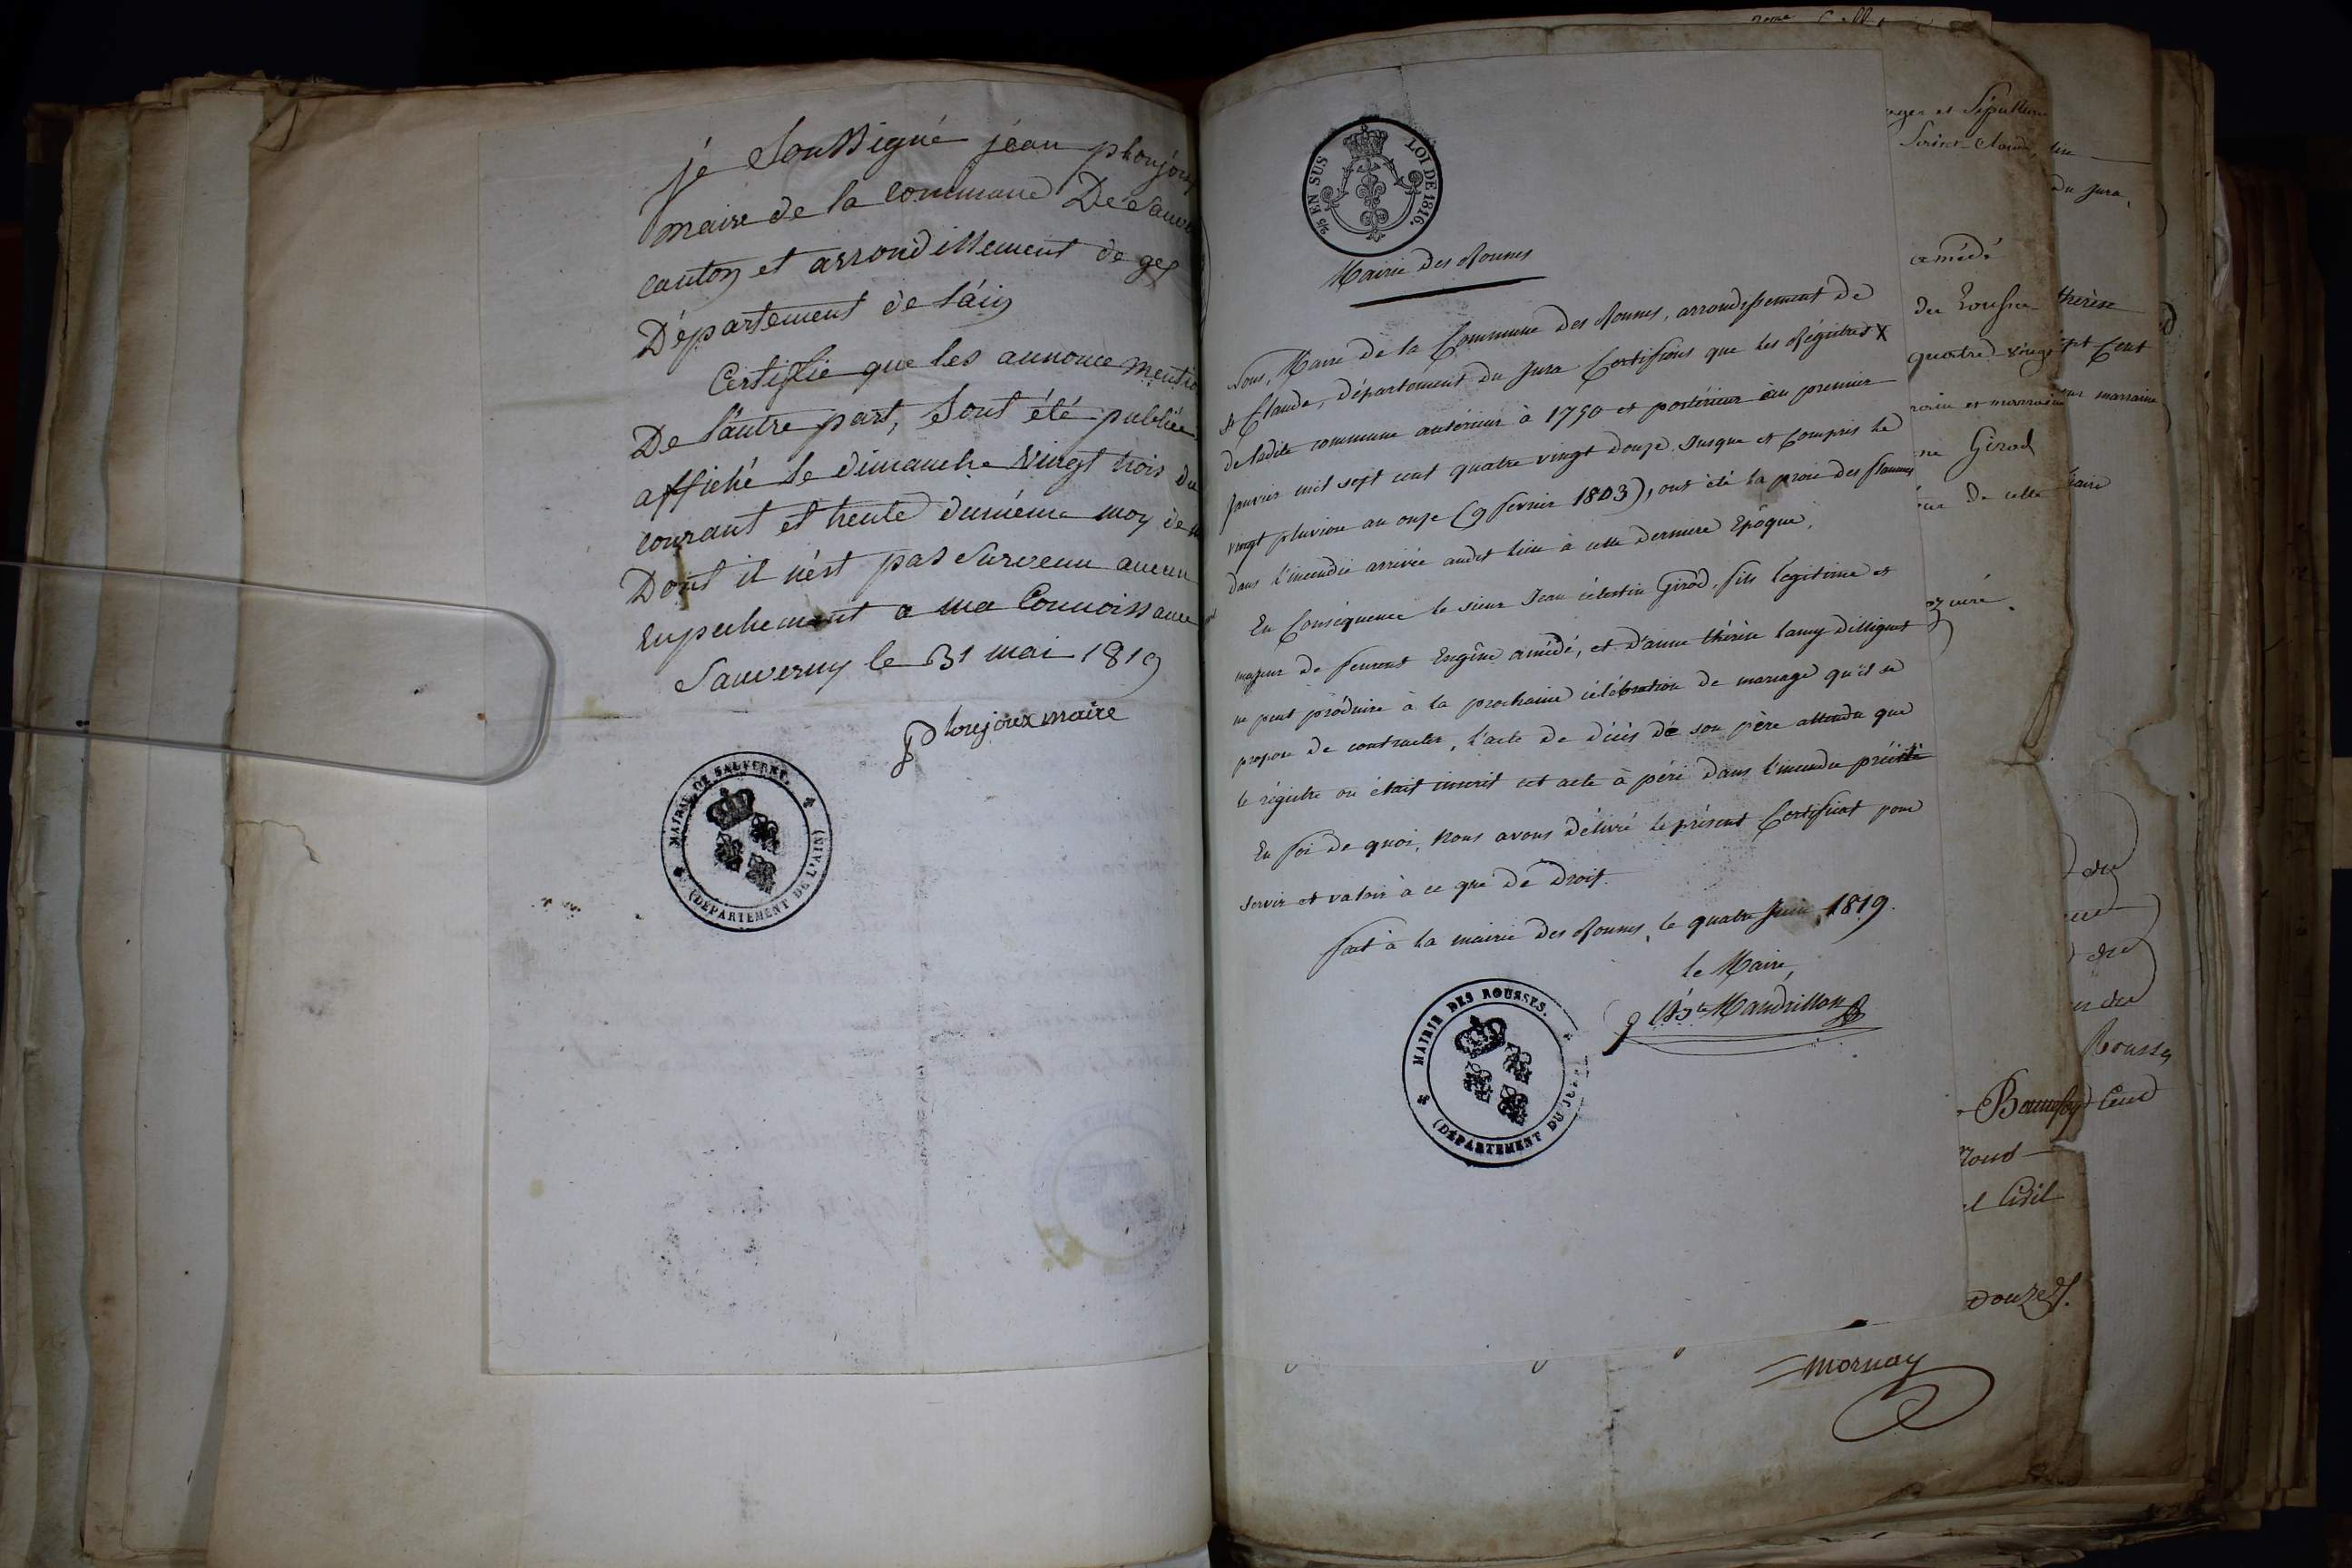 je Soussigné jean ploujoux
maire de la commune De Sauver
canton et arrondissement de gex
Département de l'ain
Certifie que les annonce mentio
De l'autre part, Sont été publiée
affiché le dimanche vingt trois du
courant et trente dumême moy de
Dont il n'est pas Survenu aucun
Enpechement a ma Connoissance
Sauverny le 31 mai 1819
Ploujoux maire
MAIRIE DE SAUVERNY.
(DÉPARTEMENT DE L'AIN)
5/10 EN SUS
LOI DE 1816.
Mairie Des Rousses
Nous, Maire de la Commune des Rousses, arrondissement de
St Claude, Département du Jura Certifions que les Régistres X
de ladite commune antérieur à 1750 et postérieur au premier
Janvier mil sept cent quatre vingt douze Jusque et Compris le
vingt pluviose an onze (9 fevrier 1803), ont été la proie des flammes
dans l'incendie arrivée audit lieu à cette derniere Epoque.
En Conséquence le sieur Jean célestin Girod, fils légitime et
majeur de feurent Engême amédé, et d'anne thérèse lamy dilligent
ne peut produire à la prochaine célébration de mariage qu'il se
propose de contracter, l'acte de décès de son père attendu que
le régistre où était inscrit cet acte à péri dans l'incendie précité
En foi de quoi, Nous avons délivré le présent Certificat pour
servir et valoir à ce que de Droit.
fait à la mairie des Rousses, le quatre Juin 1819.
le Maire,
Bte Mandrillon
MAIRIE DES ROUSSES.
(DÉPARTEMENT DU JURA)
et Sépulture
Saint-Claude, un
du Jura,
amédé
thérèse
quatre-vingt
sept Cent
et marraine
marraine
Girod
de cette
curé.
du
du
du
Rousses
Bonnefoy
Cent
Nous
Civil
Douzes.
Mornay